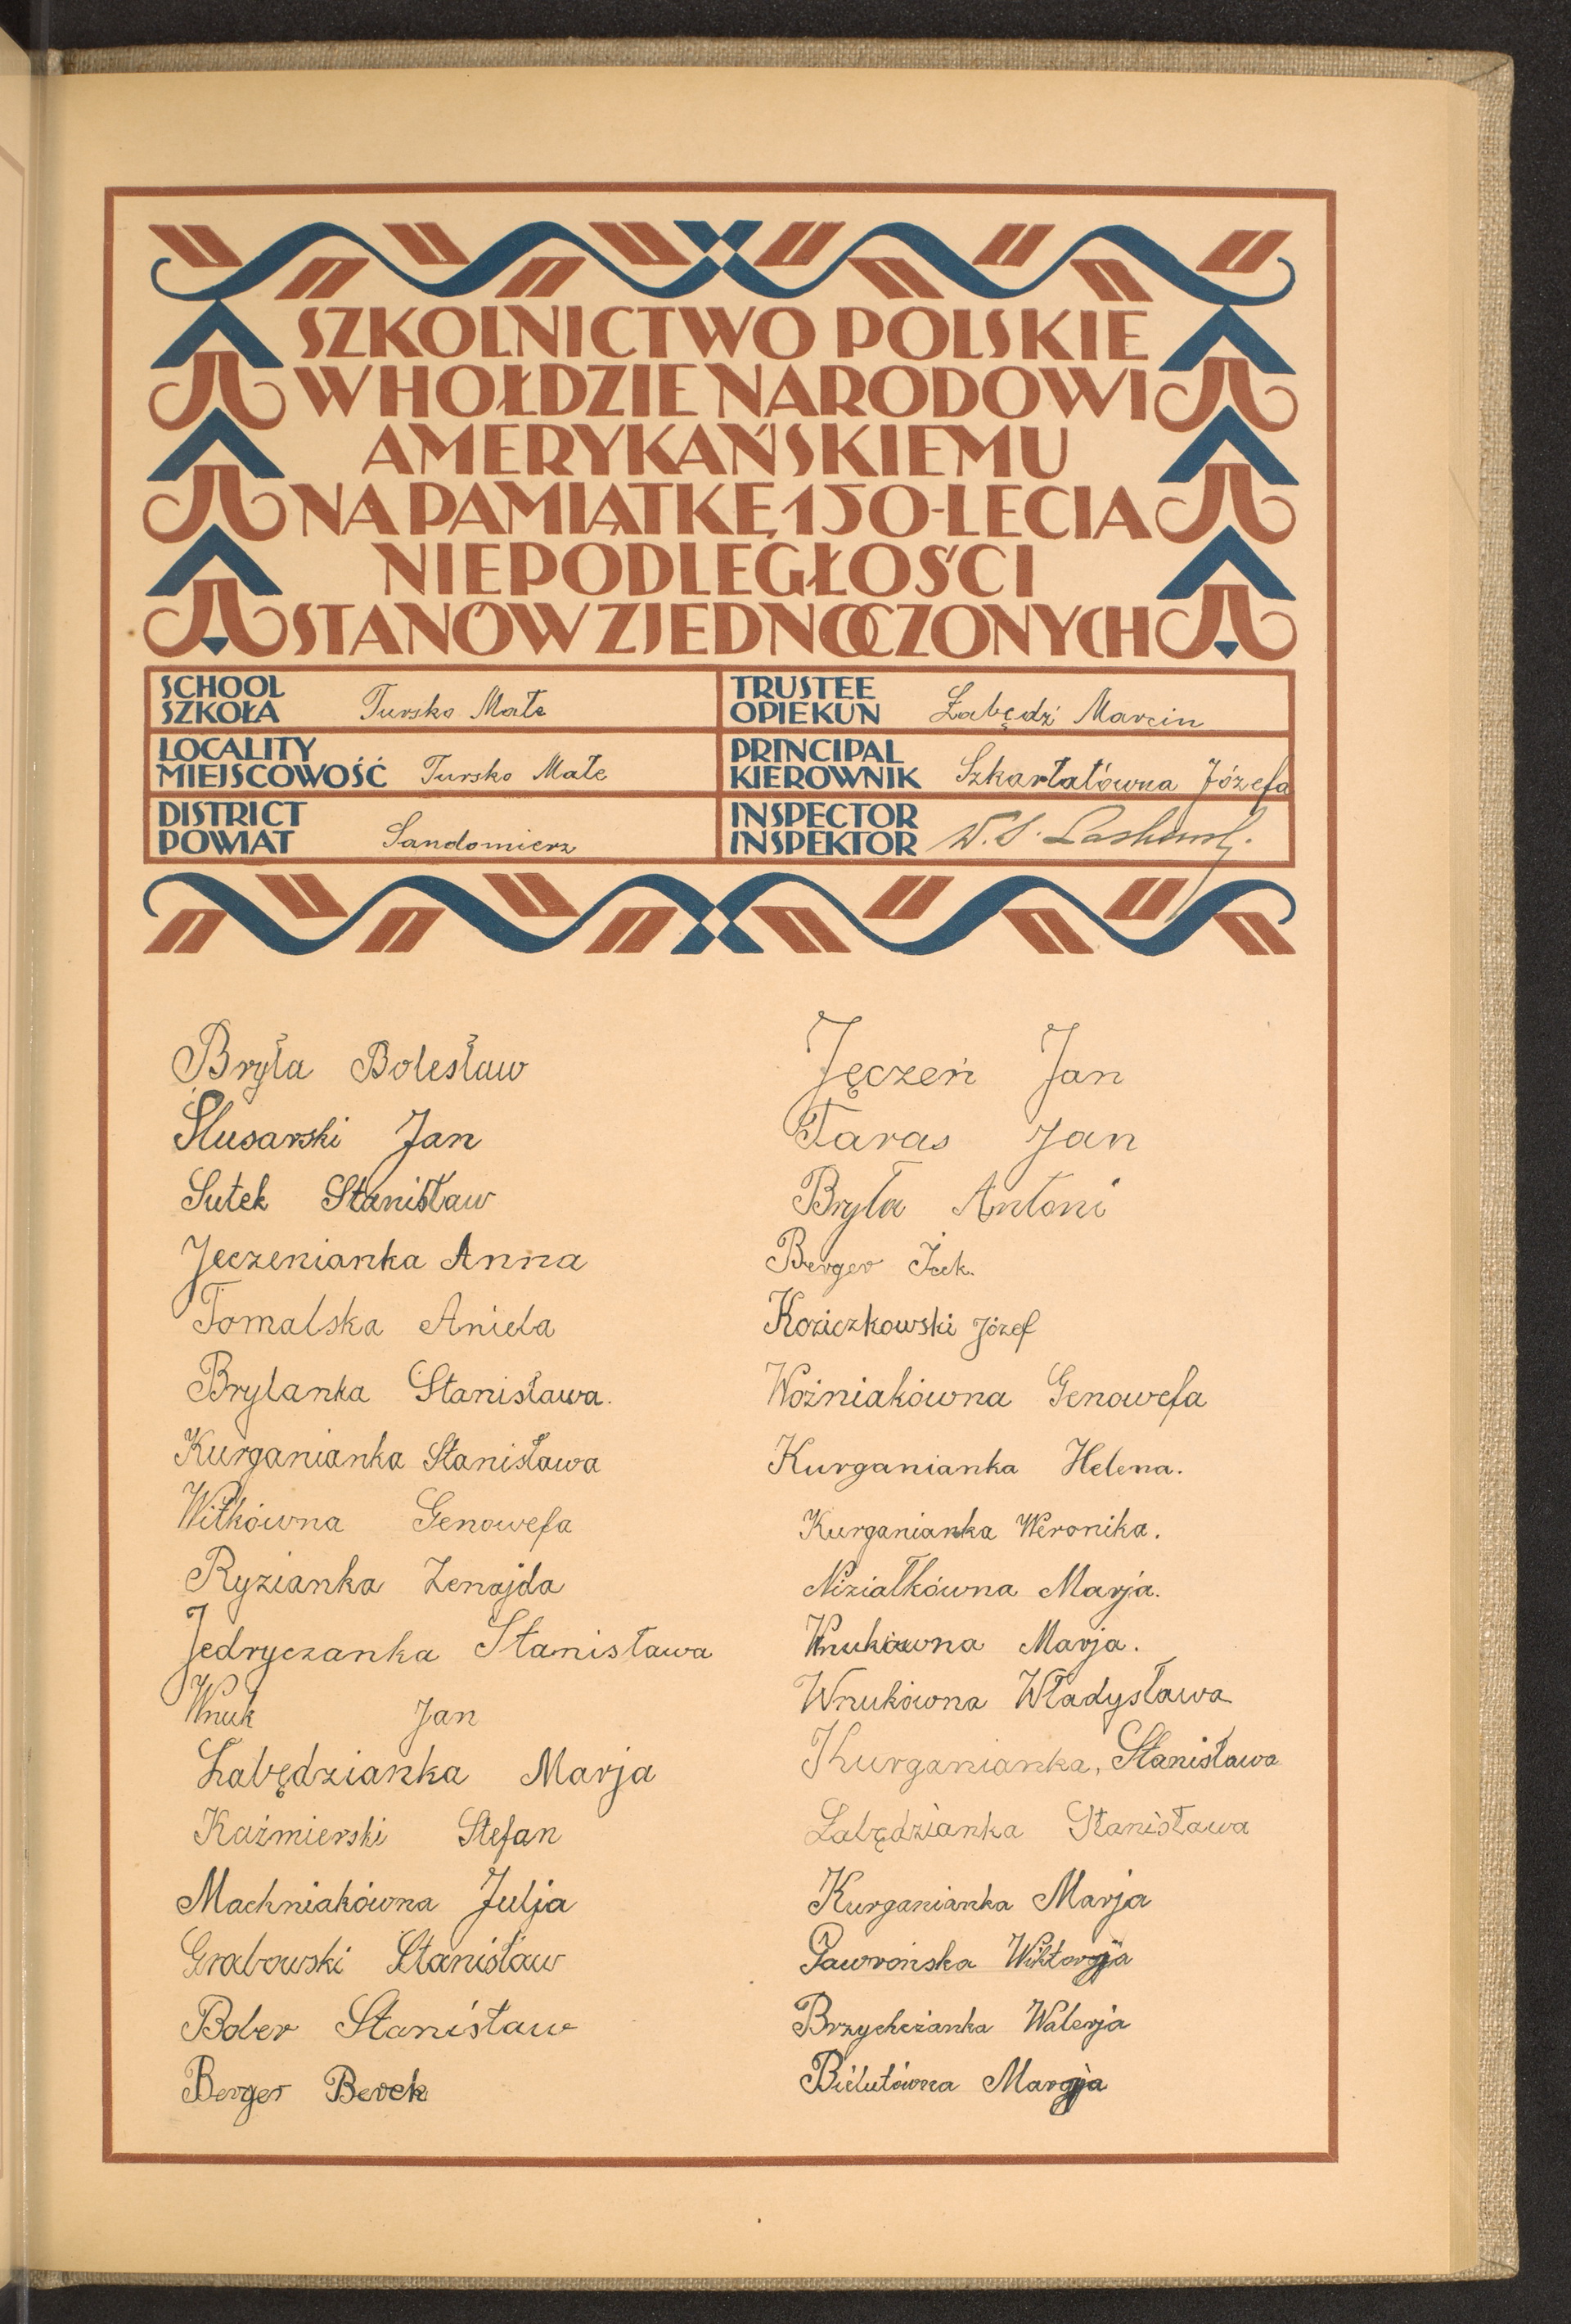 SZKOLNICTWO POLSKIE
W HOŁDZIE NARODOWI
AMERYKAŃSKIEMU
NA PAMIĄTKĘ 150-LECIA
NIEPODLEGŁOŚCI
STANÓW ZJEDNOCZONYCH
SCHOOL
SZKOŁA Tursko Małe
TRUSTEE
OPIEKUN Łabędź Marcin
LOCALITY
MIEJSCOWOŚĆ Tursko Małe
PRINCIPAL
KIEROWNIK Szkarłatówna Józefa
DISTRICT
POWIAT Sandomierz
INSPECTOR
INSPEKTOR W. S.
Bryła Bolesław
Ślusarski Jan
Sutek Stanisław
Jęczenianka Anna
Tomalska Aniela
Brylanka Stanisława.
Kurganianka Stanisława
Witkówna Genowefa
Ryzianka Zenajda
Jedryczanka Stanisława
Wnuk Jan
Łabędzianka Marja
Kaźmierski Stefan
Machniakówna Julja
Grabowski Stanisław
Bober Stanisław
Berger Berek
Jęczeń Jan
Taras Jan
Bryła Antoni
Berger Icek.
Koziczkowski Józef
Woźniakówna Genowefa
Kurganianka Helena.
Kurganianka Weronika.
Niziałkówna Marja.
Wnukówna Marja.
Wnukówna Władysława
Kurganianka, Stanisława
Łabędzianka Stanisława
Kurganianka Marja
Gawrońska Wiktorja
Brzychczanka Walerja
Bielutówna Marja